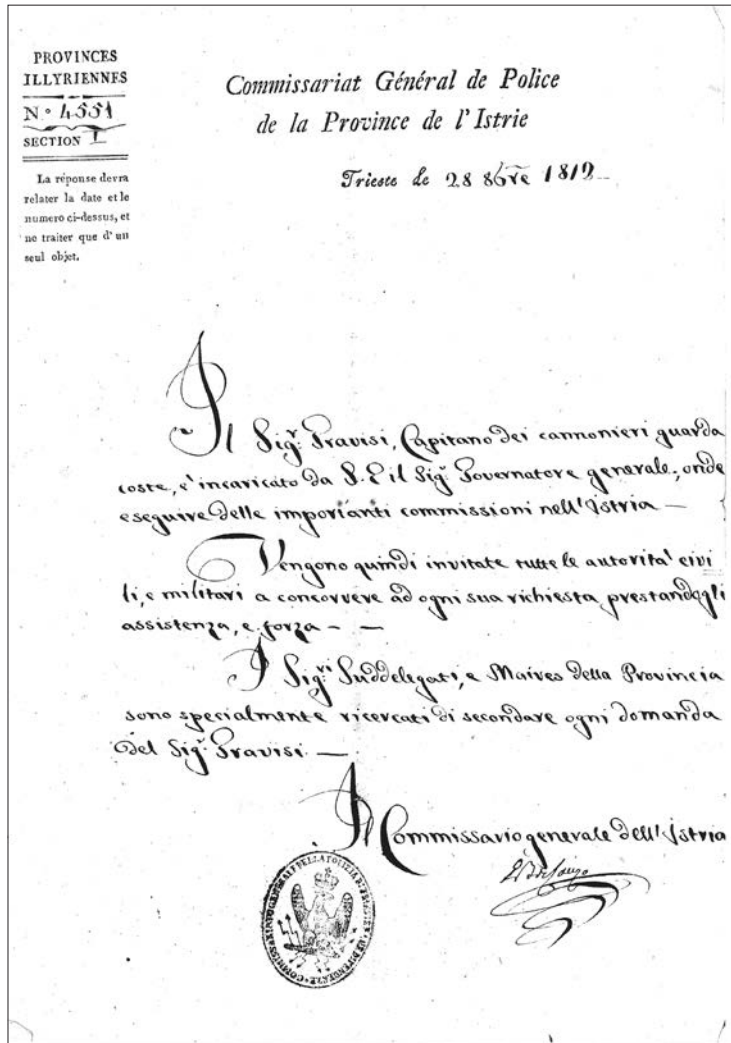 PROVINCES
ILLYRIENNES
N.º 4551
SECTION I
La réponse devra
relater la date et le
numero ci-dessus, et
ne traiter que d'un
seul objet.
Commissariat Général de Police
de la Province de l'Istrie
Trieste le 28 8bre 1812
Il Sigr. Gravisi, Capitano dei cannonieri guarda
coste, e' incaricato da S. E il Sigr. Governatore generale, onde
eseguire delle importanti commissioni nell'Istria —
Vengono quindi invitate tutte le autorita' civi
li, e militari a concorrere ad ogni sua richiesta prestandogli
assistenza, e forza — —
I Sigri. Suddelegati, e Maires della Provincia
sono specialmente ricercati di secondare ogni domanda
del Sigr. Gravisi —
Il Commissario generale dell'Istria
COMMISSARIATO GENERALE DELLA POLIZIA DI TRIESTE